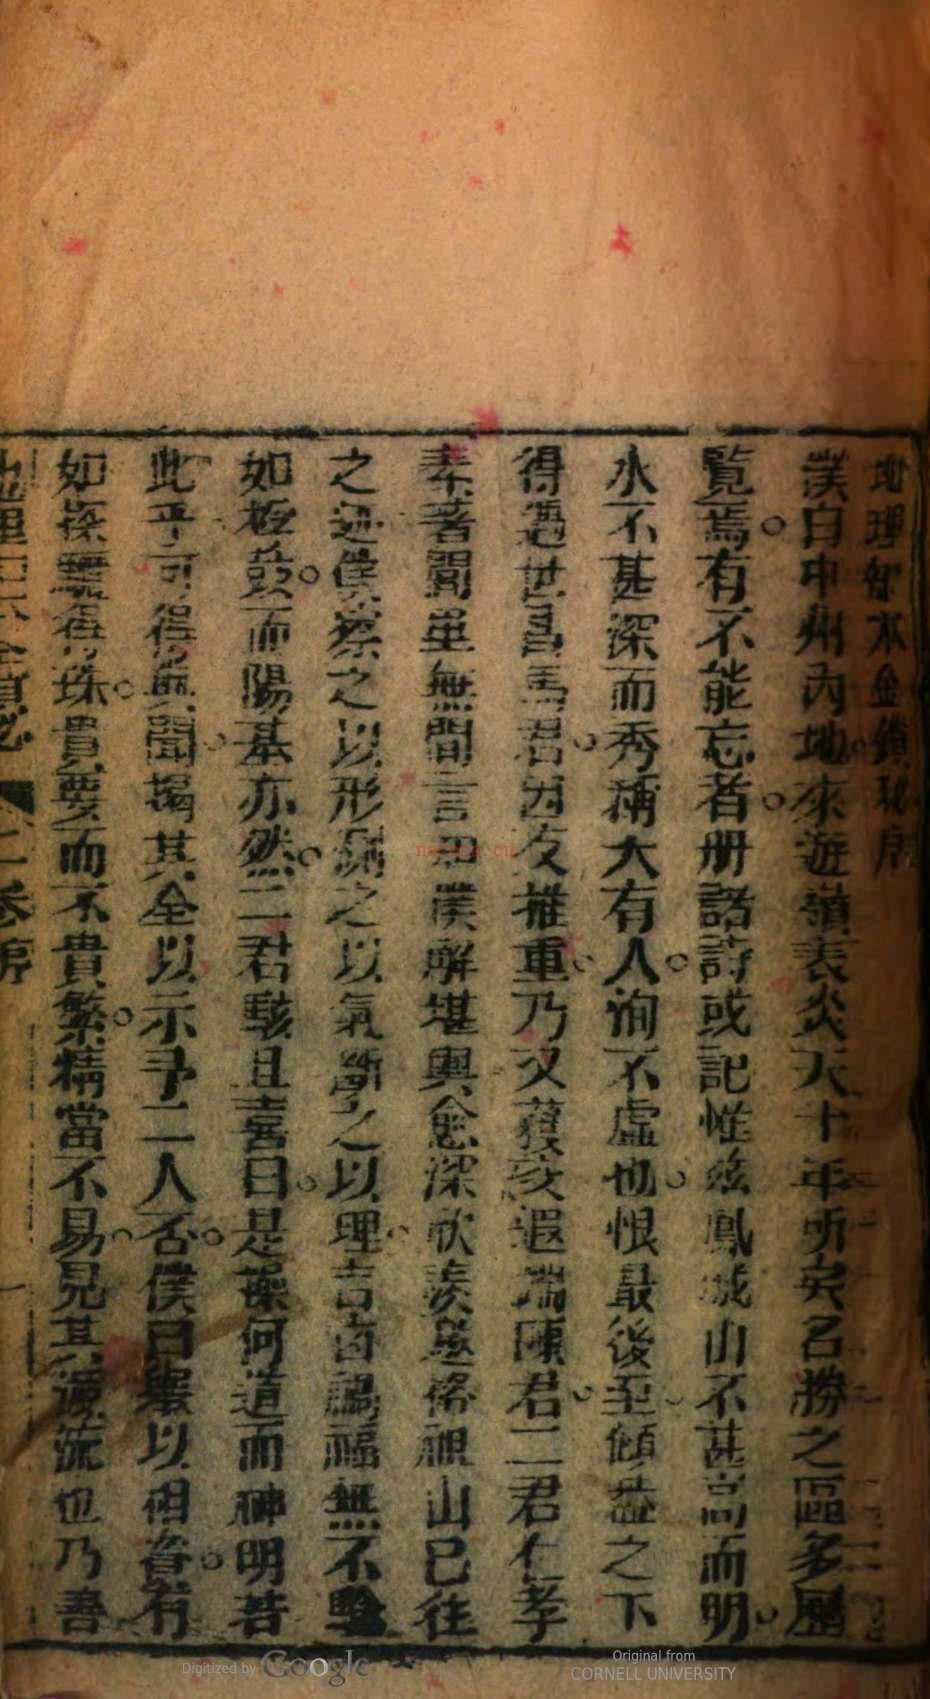 地理知本金鎖秘序
僕自中州內地來遊嶺表炎天十年所矣名勝之區多歷
覽焉有不能忘者册諸詩或記惟茲鳳城山不甚高而明
水不甚深而秀稱大有人洵不虛也恨最後至傾蓋之下
得遇世昌馬君因友推重乃又獲交遐瑞陳君二君仁孝
素著聞里無間言知僕解堪輿愈深欣羨邀僕視山已往
之迹僕察之以形測之以氣斷之以理吉凶禍福無不驗
如桴鼓而陽基亦然二君駭且喜曰是操何道而神明若
此乎可得與聞揭其全以示予二人否僕曰舉以相眷有
如探驪得珠貴要而不貴繁精當不易見其淵源流也乃吾
地理知本金鎖秘 一卷序 一
Digitized by Google
Original from
CORNELL UNIVERSITY